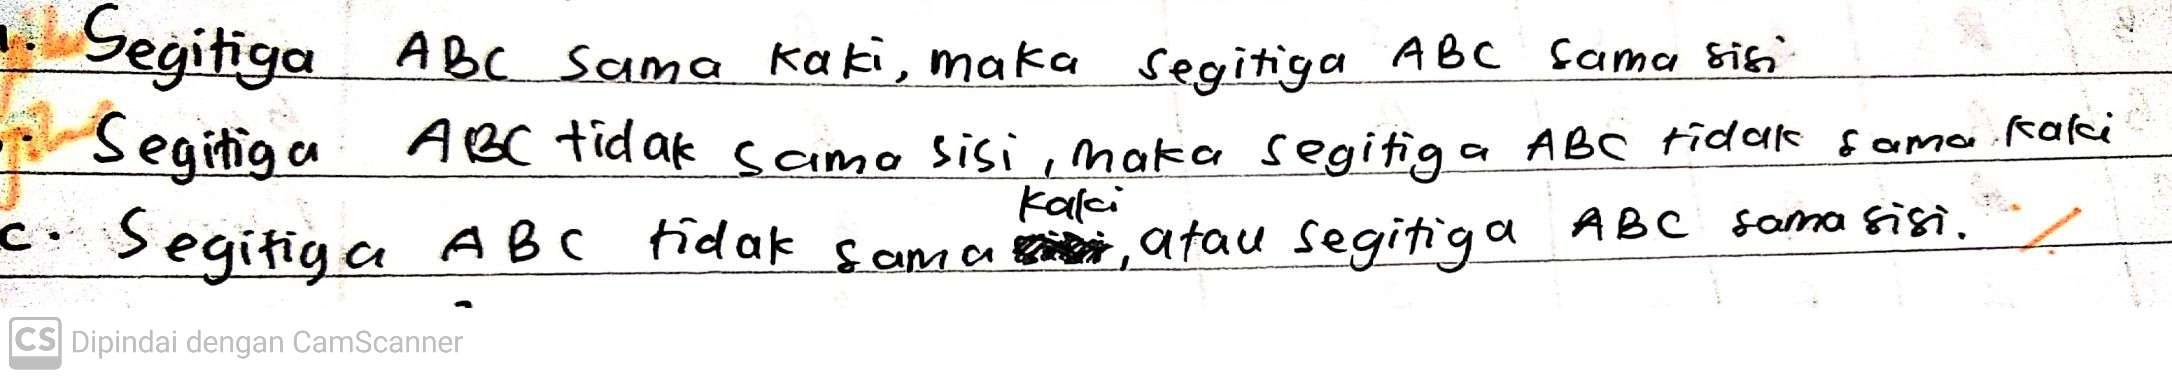 Segitiga ABC sama kaki, maka segitiga ABC sama sisi
Segitiga ABC tidak sama sisi, maka segitiga ABC tidak sama kaki
c. Segitiga ABC tidak sama kaki, atau segitiga ABC sama sisi.
CS Dipindai dengan CamScanner